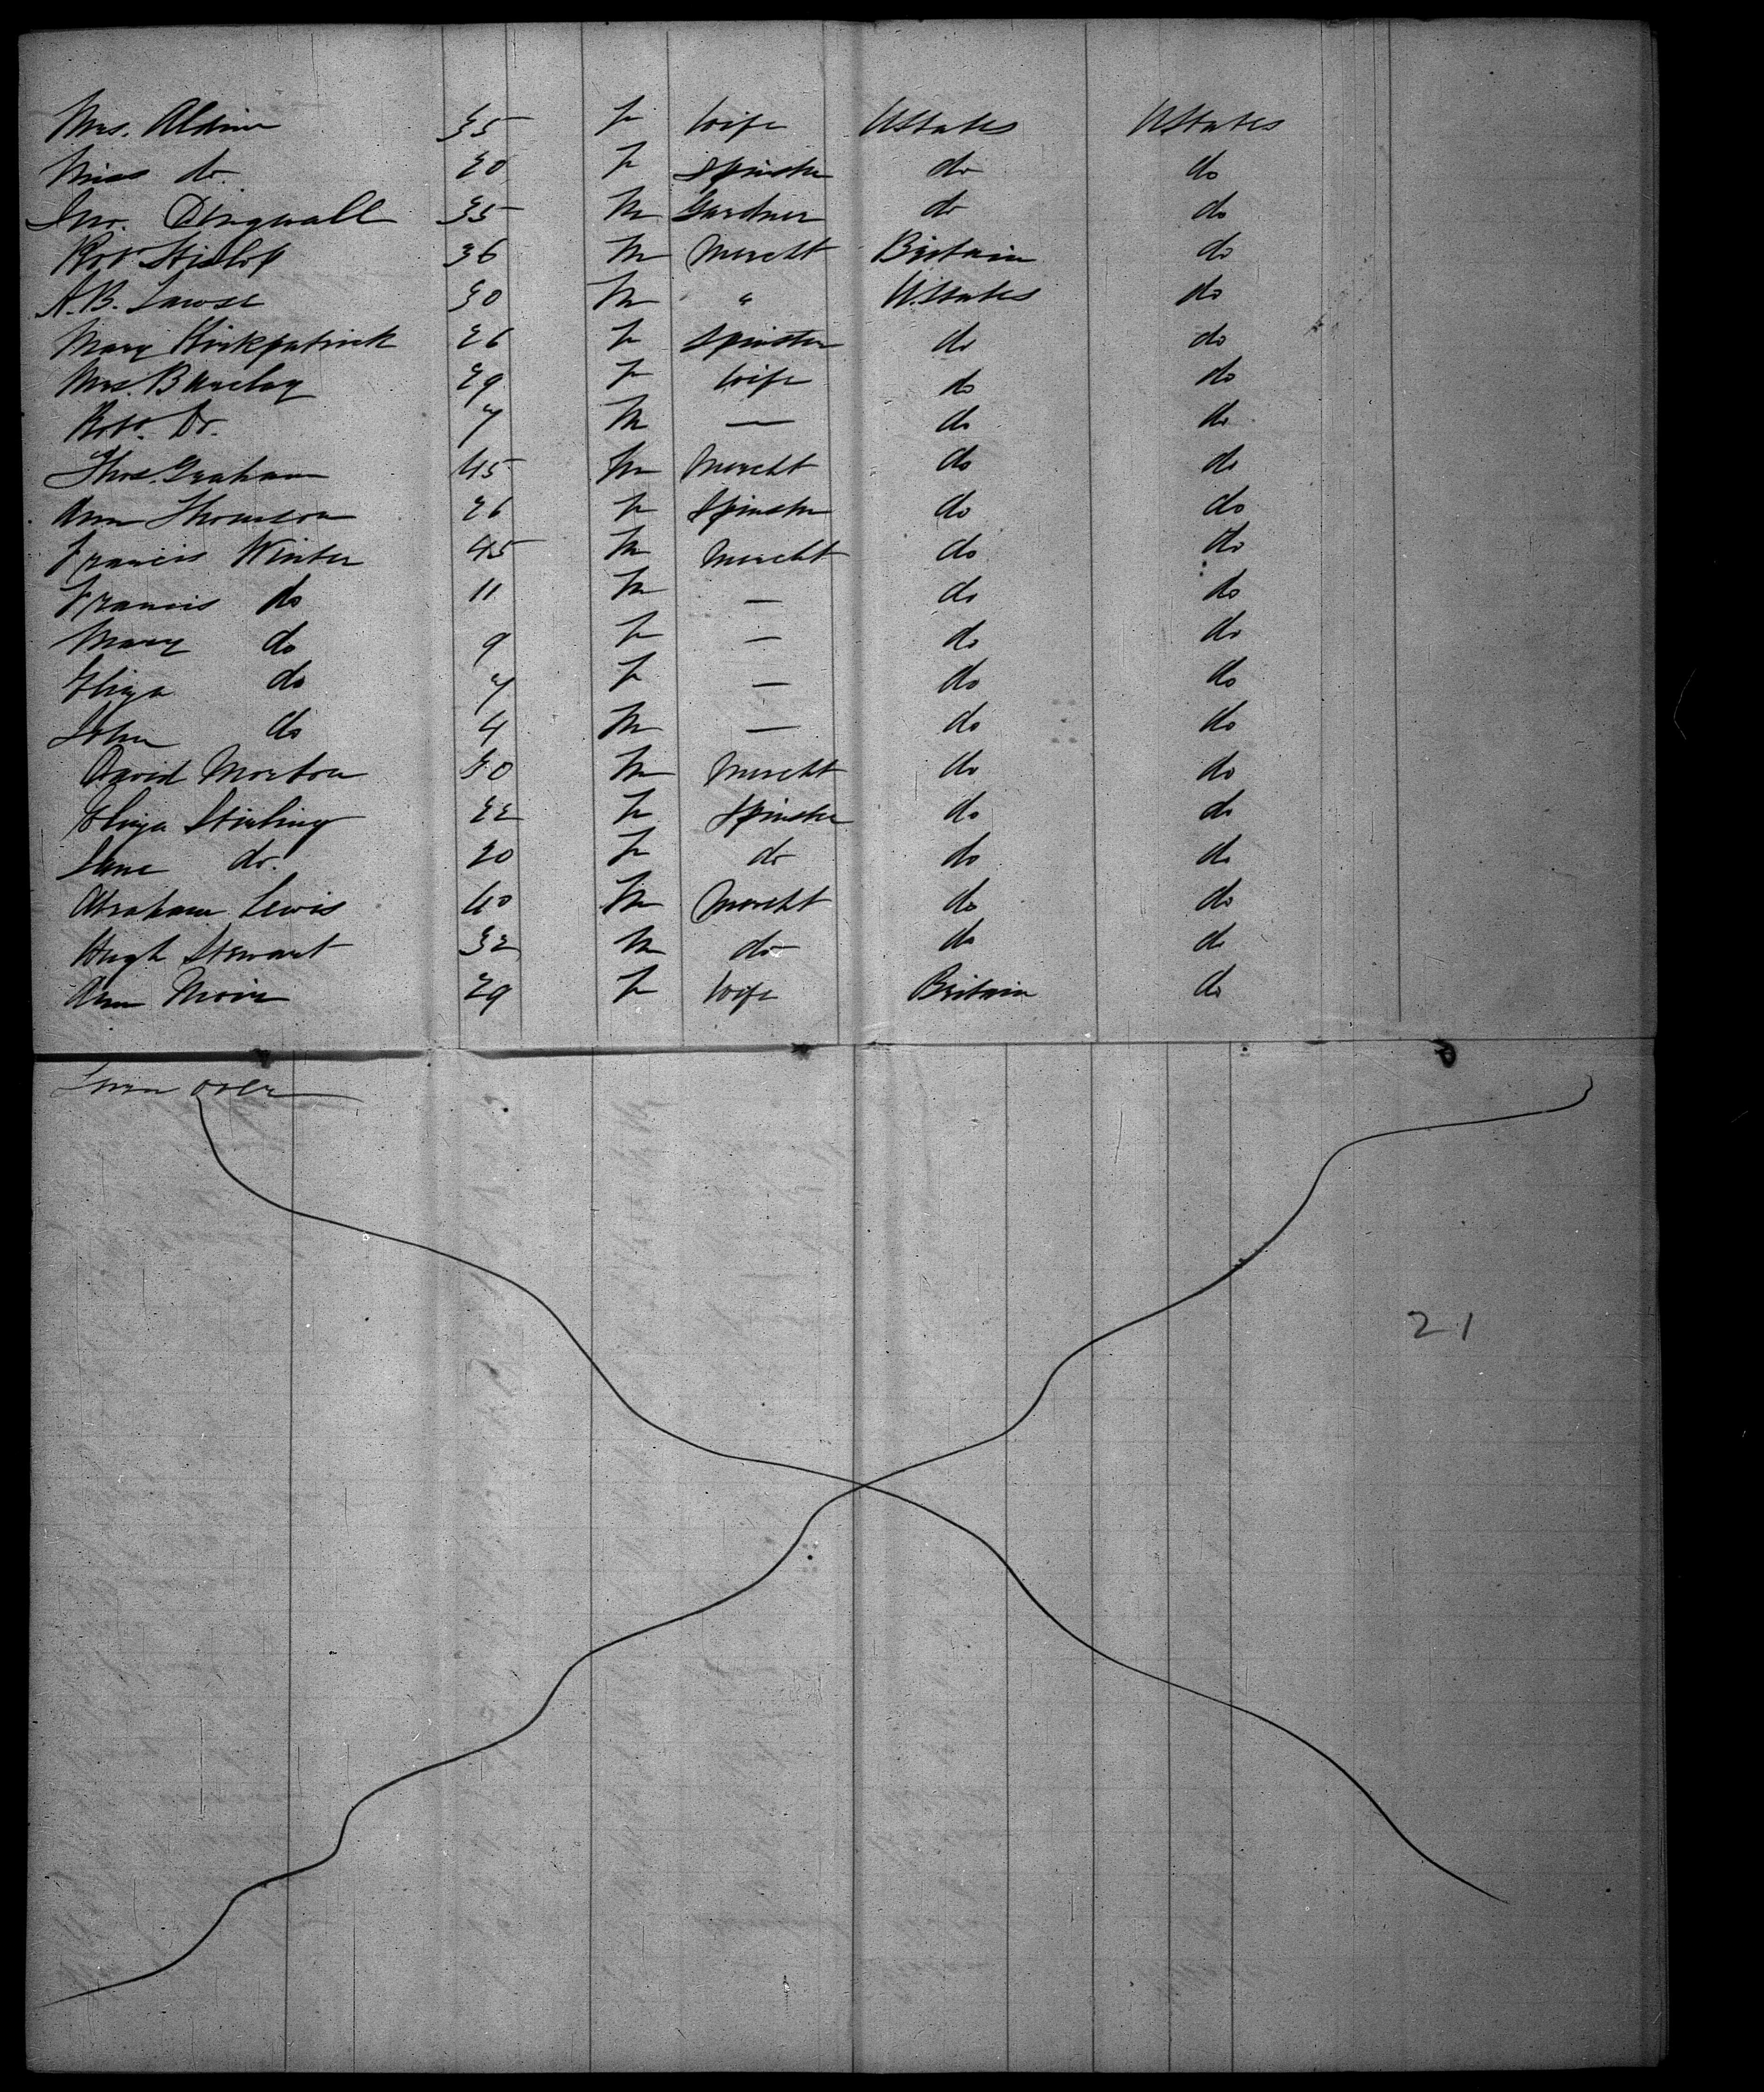 Mrs. Aldine 35 F Wife UStates UStates
Miss do. 20 F Spinster do do
Jno. Dingwall 35 M Gardner do do
Robt Hislop 36 M Mercht Britain do
A.B. 30 M " U.States do
Mary Kirkpatrick 26 F Spinster do do
Mrs. Barclay 29 F Wife do do
Robt. Do. 7 M — do do
Thos. Graham 45 M Mercht do do
Ann Thomson 26 F Spinster do do
Francis Winter 45 M Mercht do do
Francis do 11 M — do do
Mary do 9 F — do do
Eliza do 7 F — do do
John do 4 M — do do
David Morton 30 M Mercht do do
Eliza Stirling 22 F Spinster do do
Jane do. 20 F do do do
Abraham Lewis 40 M Mercht do do
Hugh Stewart 32 M do do do
Ann Moir 29 F Wife Britain do
Turn over
21